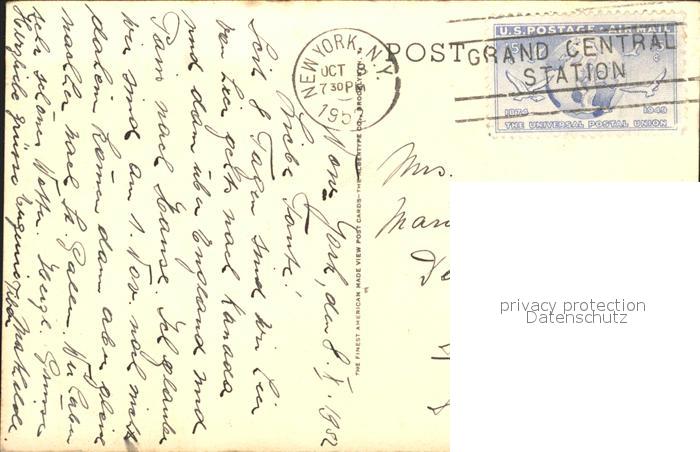 New York, den 8. X. 1952
Liebe Tante!
Seit 8 Tagen sind wir hier
von hier gehts nach Kanada
und dann über England und
Paris nach Hause. Ich glaube
wir sind am 1. Nov. noch nicht
daheim kommen dann aber gleich
nachher nach St. Gallen. Wir haben
sehr schönes Wetter. Herzl. Grüsse Mathilde.
Herzliche Grüsse Eugenie
NEW YORK, N.Y.
OCT 8
7 30 PM
195
GRAND CENTRAL
STATION
POST
U.S. POSTAGE - AIR MAIL
15 ¢
1874 1949
THE UNIVERSAL POSTAL UNION
THE FINEST AMERICAN MADE VIEW POST CARDS—THE ALBERTYPE CO., BROOKLYN
Mrs.
privacy protection
Datenschutz